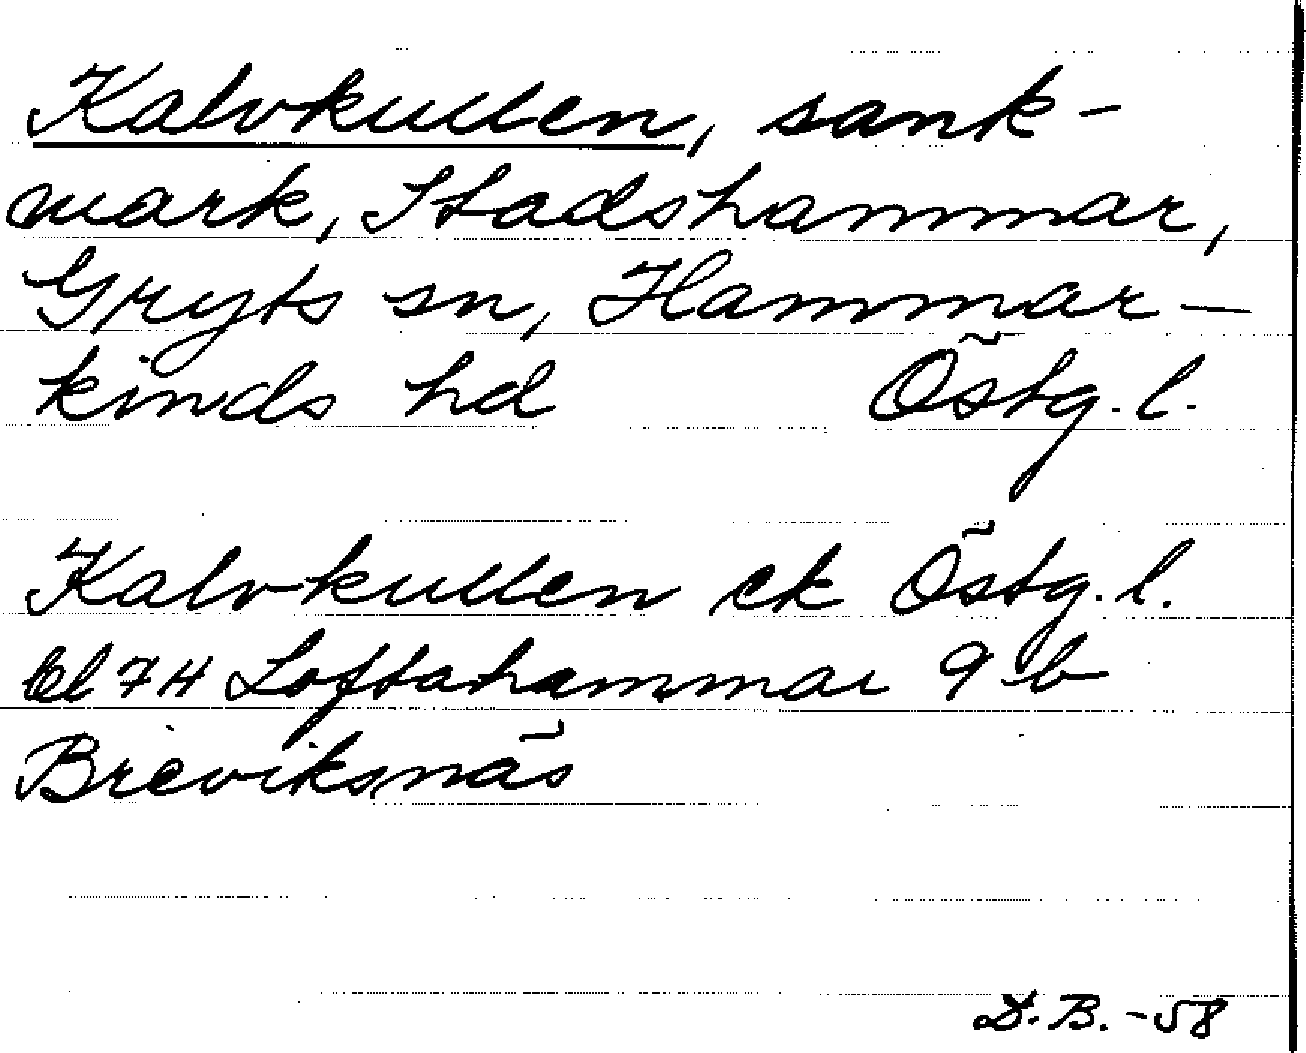 Kalvkullen, sank-
mark, Stadshammar,
Gryts sn, Hammar-
kinds hd Östg. l.
Kalvkullen ek Östg. l.
bl 7H Loftahammar 9 b
Breviksnäs
D.B. -58